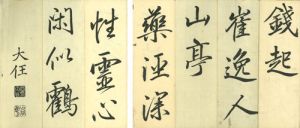 錢起
崔逸人
山亭
藥逕深
性靈心
閑似鶴
大任